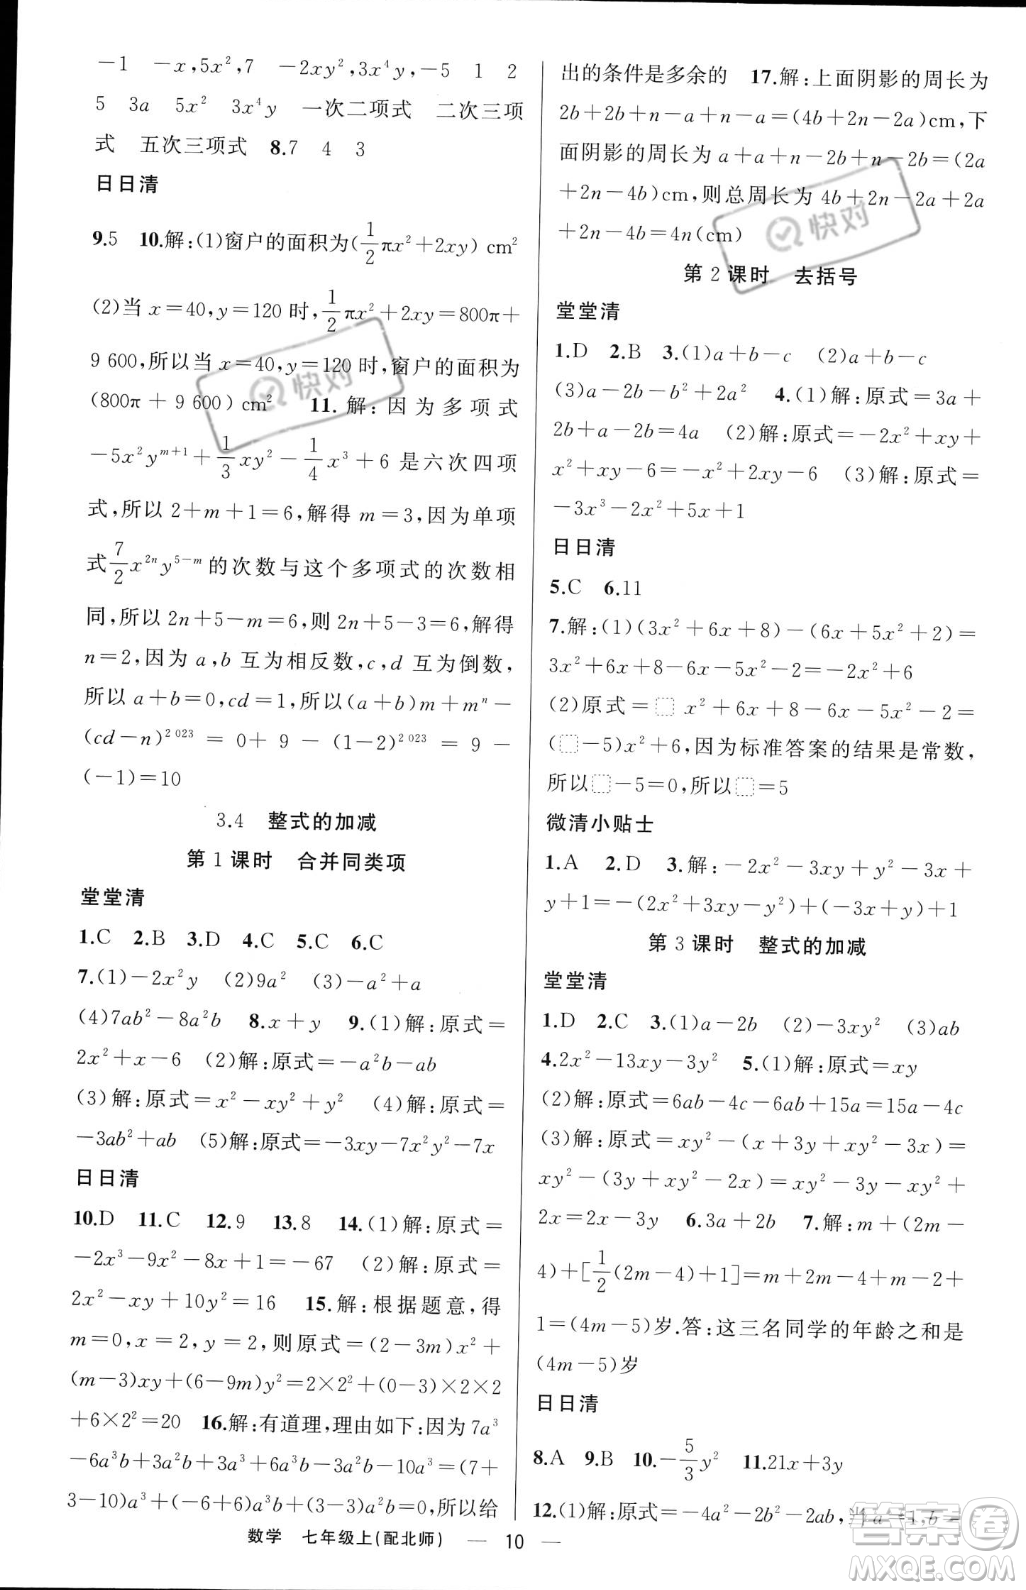 －1　－x,5x²,7　－2xy²,3x⁴y,－5　1　2
5　3a　5x²　3x⁴y　一次二项式　二次三项
式　五次三项式　8.7　4　3
日日清
9.5　10.解:(1)窗户的面积为(1/2πx²＋2xy) cm²
(2)当 x＝40,y＝120 时,1/2πx²＋2xy＝800π＋
9 600,所以当 x＝40,y＝120 时,窗户的面积为
(800π＋9 600)cm²　11.解:因为多项式
－5x²y^(m＋1)＋1/3xy²－1/4x³＋6 是六次四项
式,所以 2＋m＋1＝6,解得 m＝3,因为单项
式7/2x^(2n)y^(5－m)的次数与这个多项式的次数相
同,所以 2n＋5－m＝6,则 2n＋5－3＝6,解得
n＝2,因为 a,b 互为相反数,c,d 互为倒数,
所以 a＋b＝0,cd＝1,所以(a＋b)m＋mⁿ－
(cd－n)^2 023＝0＋9－(1－2)^2 023＝9－
(－1)＝10
3.4　整式的加减
第 1 课时　合并同类项
堂堂清
1.C　2.B　3.D　4.C　5.C　6.C
7.(1)－2x²y　(2)9a²　(3)－a²＋a
(4)7ab²－8a²b　8.x＋y　9.(1)解:原式＝
2x²＋x－6　(2)解:原式＝－a²b－ab
(3)解:原式＝x²－xy²＋y　(4)解:原式＝
－3ab²＋ab　(5)解:原式＝－3xy－7x²y²－7x
日日清
10.D　11.C　12.9　13.8　14.(1)解:原式＝
－2x³－9x²－8x＋1＝－67　(2)解:原式＝
2x²－xy＋10y²＝16　15.解:根据题意,得
m＝0,x＝2,y＝2,则原式＝(2－3m)x²＋
(m－3)xy＋6y²＝2×2²＋(－3)×2×2
＋6×2²＝20　16.解:有道理,理由如下:因为7a³
－6a³b＋3a²b＋3a³＋6a³b－3a²b－10a³＝(7＋
3－10)a³＋(－6＋6)a³b＋(3－3)a²b＝0,所以给
出的条件是多余的　17.解:上面阴影的周长为
2b＋2b＋n－a＋n－a＝(4b＋2n－2a)cm,下
面阴影的周长为 a＋a＋n－2b＋n－2b＝(2a
＋2n－4b)cm,则总周长为 4b＋2n－2a＋2a
＋2n－4b＝4n(cm)
第 2 课时　去括号
堂堂清
1.D　2.B　3.(1)a＋b－c　(2)a－b－c
(3)a－2b－b²＋2a²　4.(1)解:原式＝3a＋
2b＋a－2b＝4a　(2)解:原式＝－2x²＋xy＋
x²＋xy－6＝－x²＋2xy－6　(3)解:原式＝
－3x³－2x²＋5x＋1
日日清
5.C　6.11
7.解:(1)(3x²＋6x＋8)－(6x＋5x²＋2)＝
3x²＋6x＋8－6x－5x²－2＝－2x²＋6
(2)原式＝□ x²＋6x＋8－6x－5x²－2＝
(□－5)x²＋6,因为标准答案的结果是常数,
所以□－5＝0,所以□＝5
微清小贴士
1.A　2.D　3.解:－2x²－3xy＋y²－3x＋
y＋1＝－(2x²＋3xy－y²)＋(－3x＋y)＋1
第 3 课时　整式的加减
堂堂清
1.D　2.C　3.(1)a－2b　(2)－3xy²　(3)ab
4.2x²－13xy－3y²　5.(1)解:原式＝xy
(2)解:原式＝6ab－4c－6ab＋15a＝15a－4c
(3)解:原式＝xy²－(x＋3y＋xy²－3x)＝
xy²－x－3y－xy²＋3x＝xy²－3y－xy²＋
2x＝2x－3y　6.3a＋2b　7.解:m＋(2m－
4)＋[1/2(2m－4)＋1]＝m＋2m－4＋m－2＋
1＝(4m－5)岁.答:这三名同学的年龄之和是
(4m－5)岁
日日清
8.A　9.B　10.－5/3y²　11.21x＋3y
12.(1)解:原式＝－4a²－2b²－2ab,当 a＝1,b＝
数学　七年级上(配北师)　— 10 —
快对
快对
答案圈
MXQE.COM